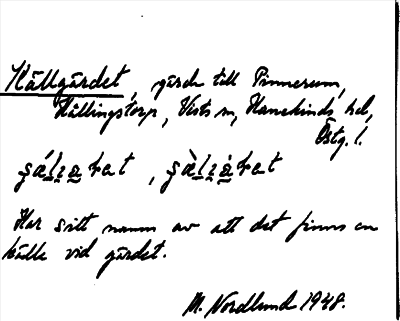 Källgärdet, gärde till Pinnerum,
Hållingstorp, Vists sn, Hanekinds hd,
Östg. l.
Har sitt namn av att det finns en
källa vid gärdet.
M. Nordlund 1948.